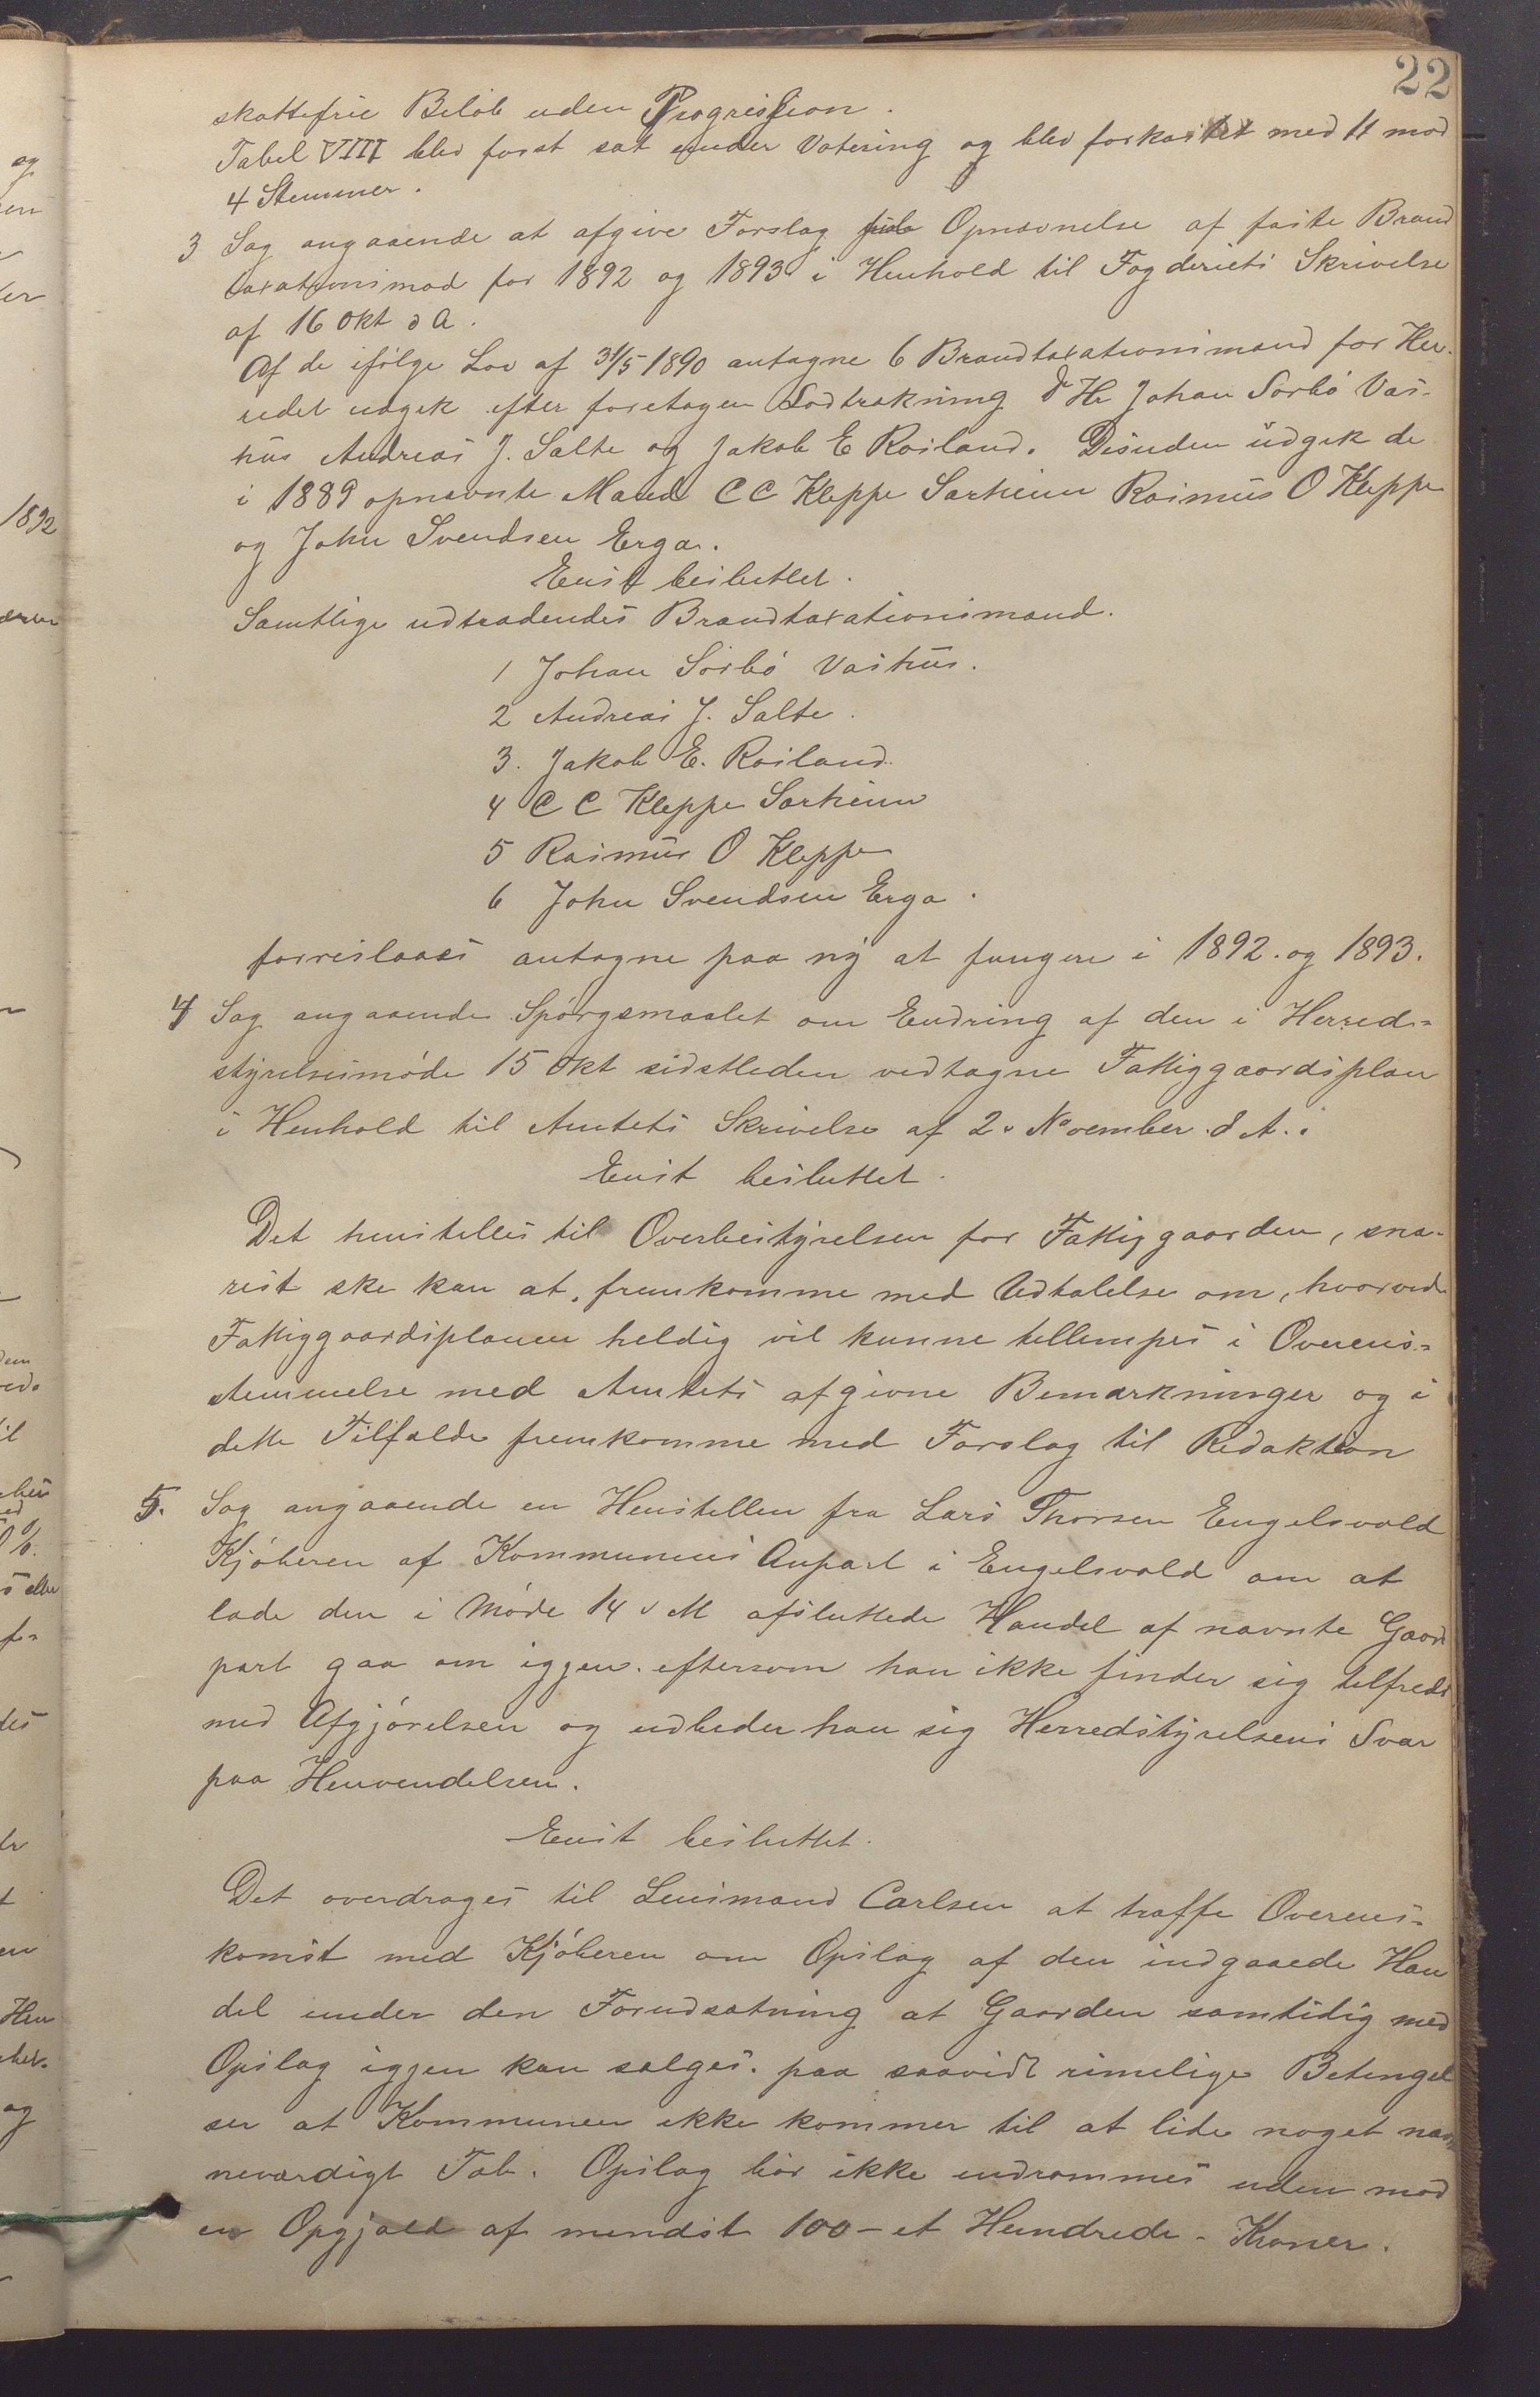 22
skattefrie Beløb uden Progression.
Tabel VIII blev først sat under Votering og blev forkastet med 11 mod
4 Stemmer.
3 Sag angaaende at afgive Forslag Opnævnelse af faste Brand
taxationsmæd for 1892 og 1893 i Henhold til Fogderiets Skrivelse
af 16 Okt d A.
Af de ifølge Lov af 31/5 1890 antagne 6 Brandtaxationsmænd for Her-
redet udgik efter foretagen Lodtrækning d'Hr Johan Sørbø Vas-
hus Andreas J. Salte og Jakob E Rosland. Desuden udgik de
i 1889 opnævnte Mænd C C Kleppe Sørheim Rasmus O Kleppe
og John Svendsen Erga.
Enst besluttet.
Samtlige udtrædendes Brandtaxationsmænd.
1 Johan Sørbø Vashus.
2 Andreas J. Salte.
3. Jakob E. Rosland.
4 C C Kleppe Sørheim
5 Rasmus O Kleppe
6 John Svendsen Erga.
forreslaaes antagne paa ny at fungere i 1892. og 1893.
4 Sag angaaende Spørgsmaalet om Endring af den i Herreds=
styrelsesmøde 15 Okt sidstleden vedtagne Fattiggaardsplan
i Henhold til Amtets Skrivelse af 2. November d A.
Enst besluttet.
Det henstilles til Overbestyrelsen for Fattiggaarden, sna-
rest ske kan at fremkomme med Udtalelse om, hvorvidt
Fattiggaardsplanen heldig vil kunne tillempes i Overens=
stemmelse med Amtets afgivne Bemærkninger og i
dette Tilfælde fremkomme med Forslag til Redaktion
5. Sag angaaende en Henstillen fra Lars Thorsen Engelsvold
Kjøberen af Kommunens Anpart i Engelsvold om at
lade den i Møde 14 d M afsluttede Handel af nævnte Gaard
part gaa om iggen. eftersom han ikke finder sig tilfreds
med Afgjørelsen og udbeder han sig Herredstyrelsens Svar
paa Henvendelsen.
Enst besluttet.
Det overdrages til Lensmand Carlsen at træffe Overens=
komst med Kjøberen om Opslag af den indgaaede Han
del under den Forudsætning at Gaarden samtidig med
Opslag iggen kan sælges. paa saavidt rimelige Betingel
ser at Kommunen ikke kommer til at lide noget næv
neværdigt Tab. Opslag bør ikke indrømmes uden mod
en Opgjæld af mindst 100 - et Hundrede - Kroner.